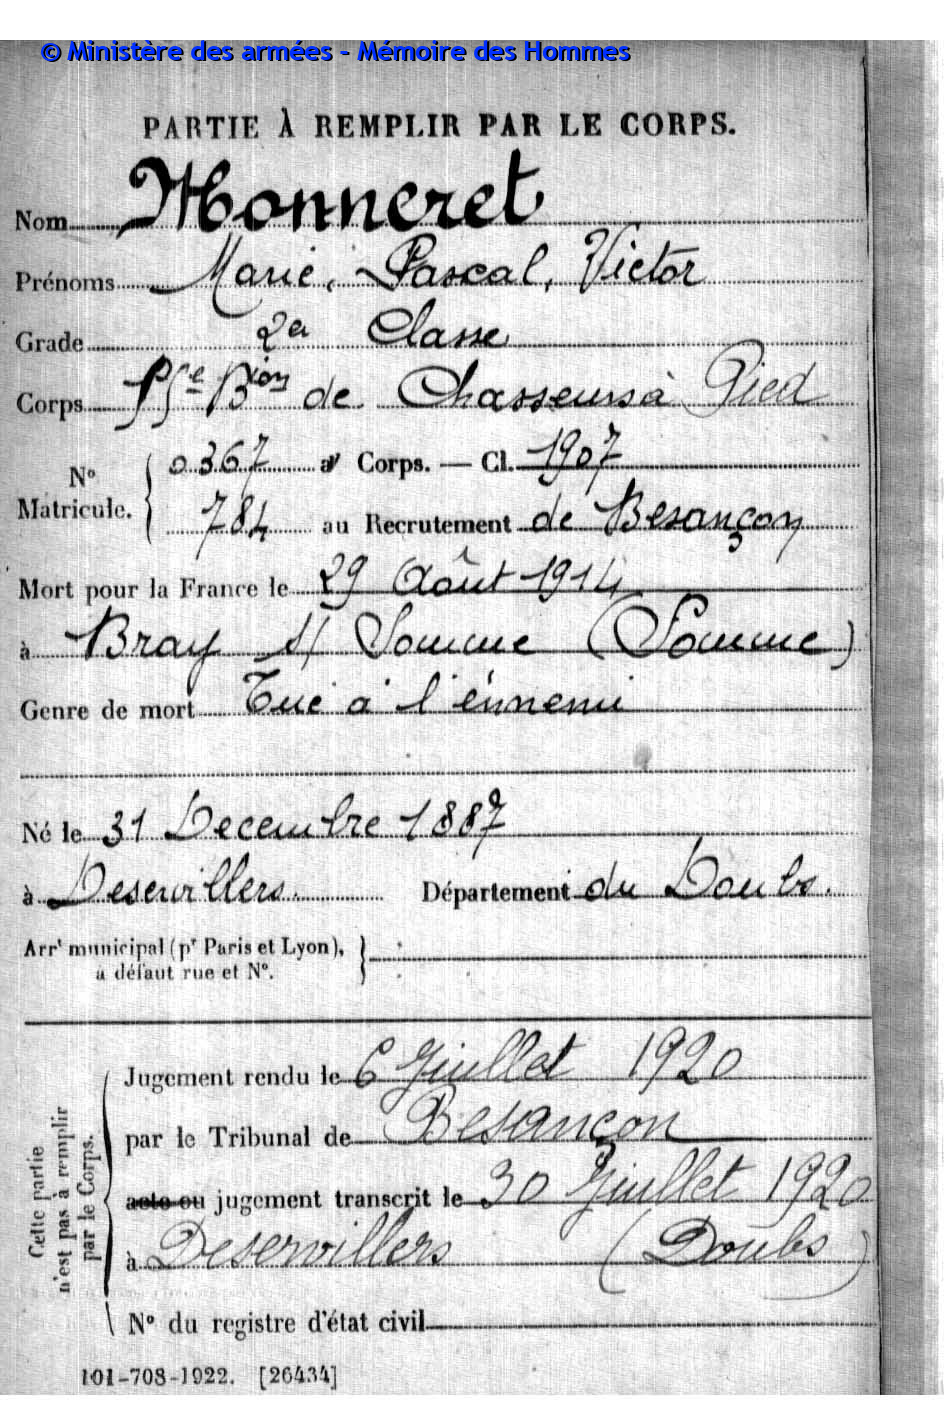 © Ministère des armées - Mémoire des Hommes
PARTIE À REMPLIR PAR LE CORPS.
Nom Monneret
Prénoms Marie, Pascal, Victor
Grade 2e Classe
Corps Bion de Chasseurs à Pied
No Matricule. { 0367 au Corps. — Cl. 1907
784 au Recrutement de Besançon
Mort pour la France le 29 Août 1914
à Bray s/ Somme (Somme)
Genre de mort Tué à l'énnemi
Né le 31 Decembre 1887
à Deservillers. Département du Doubs.
Arrt municipal (pr Paris et Lyon),
à défaut rue et No.
Cette partie
n'est pas à remplir
par le Corps.
Jugement rendu le 6 Juillet 1920
par le Tribunal de Besançon
acte ou jugement transcrit le 30 Juillet 1920
à Deservillers (Doubs)
No du registre d'état civil
101-708-1922. [26434]